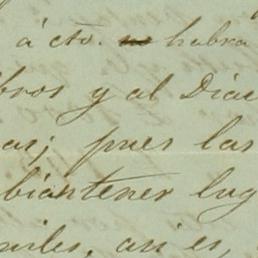 á cto. habra
bros y al Diar
as; pues las
biantener lug
miles, asi es,